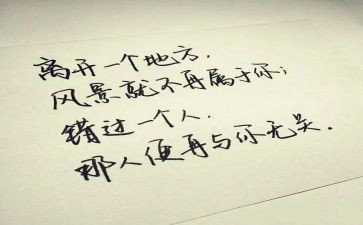 离开一个地方，
风景就不再属于你；
错过一个人，
那人便再与你无关。